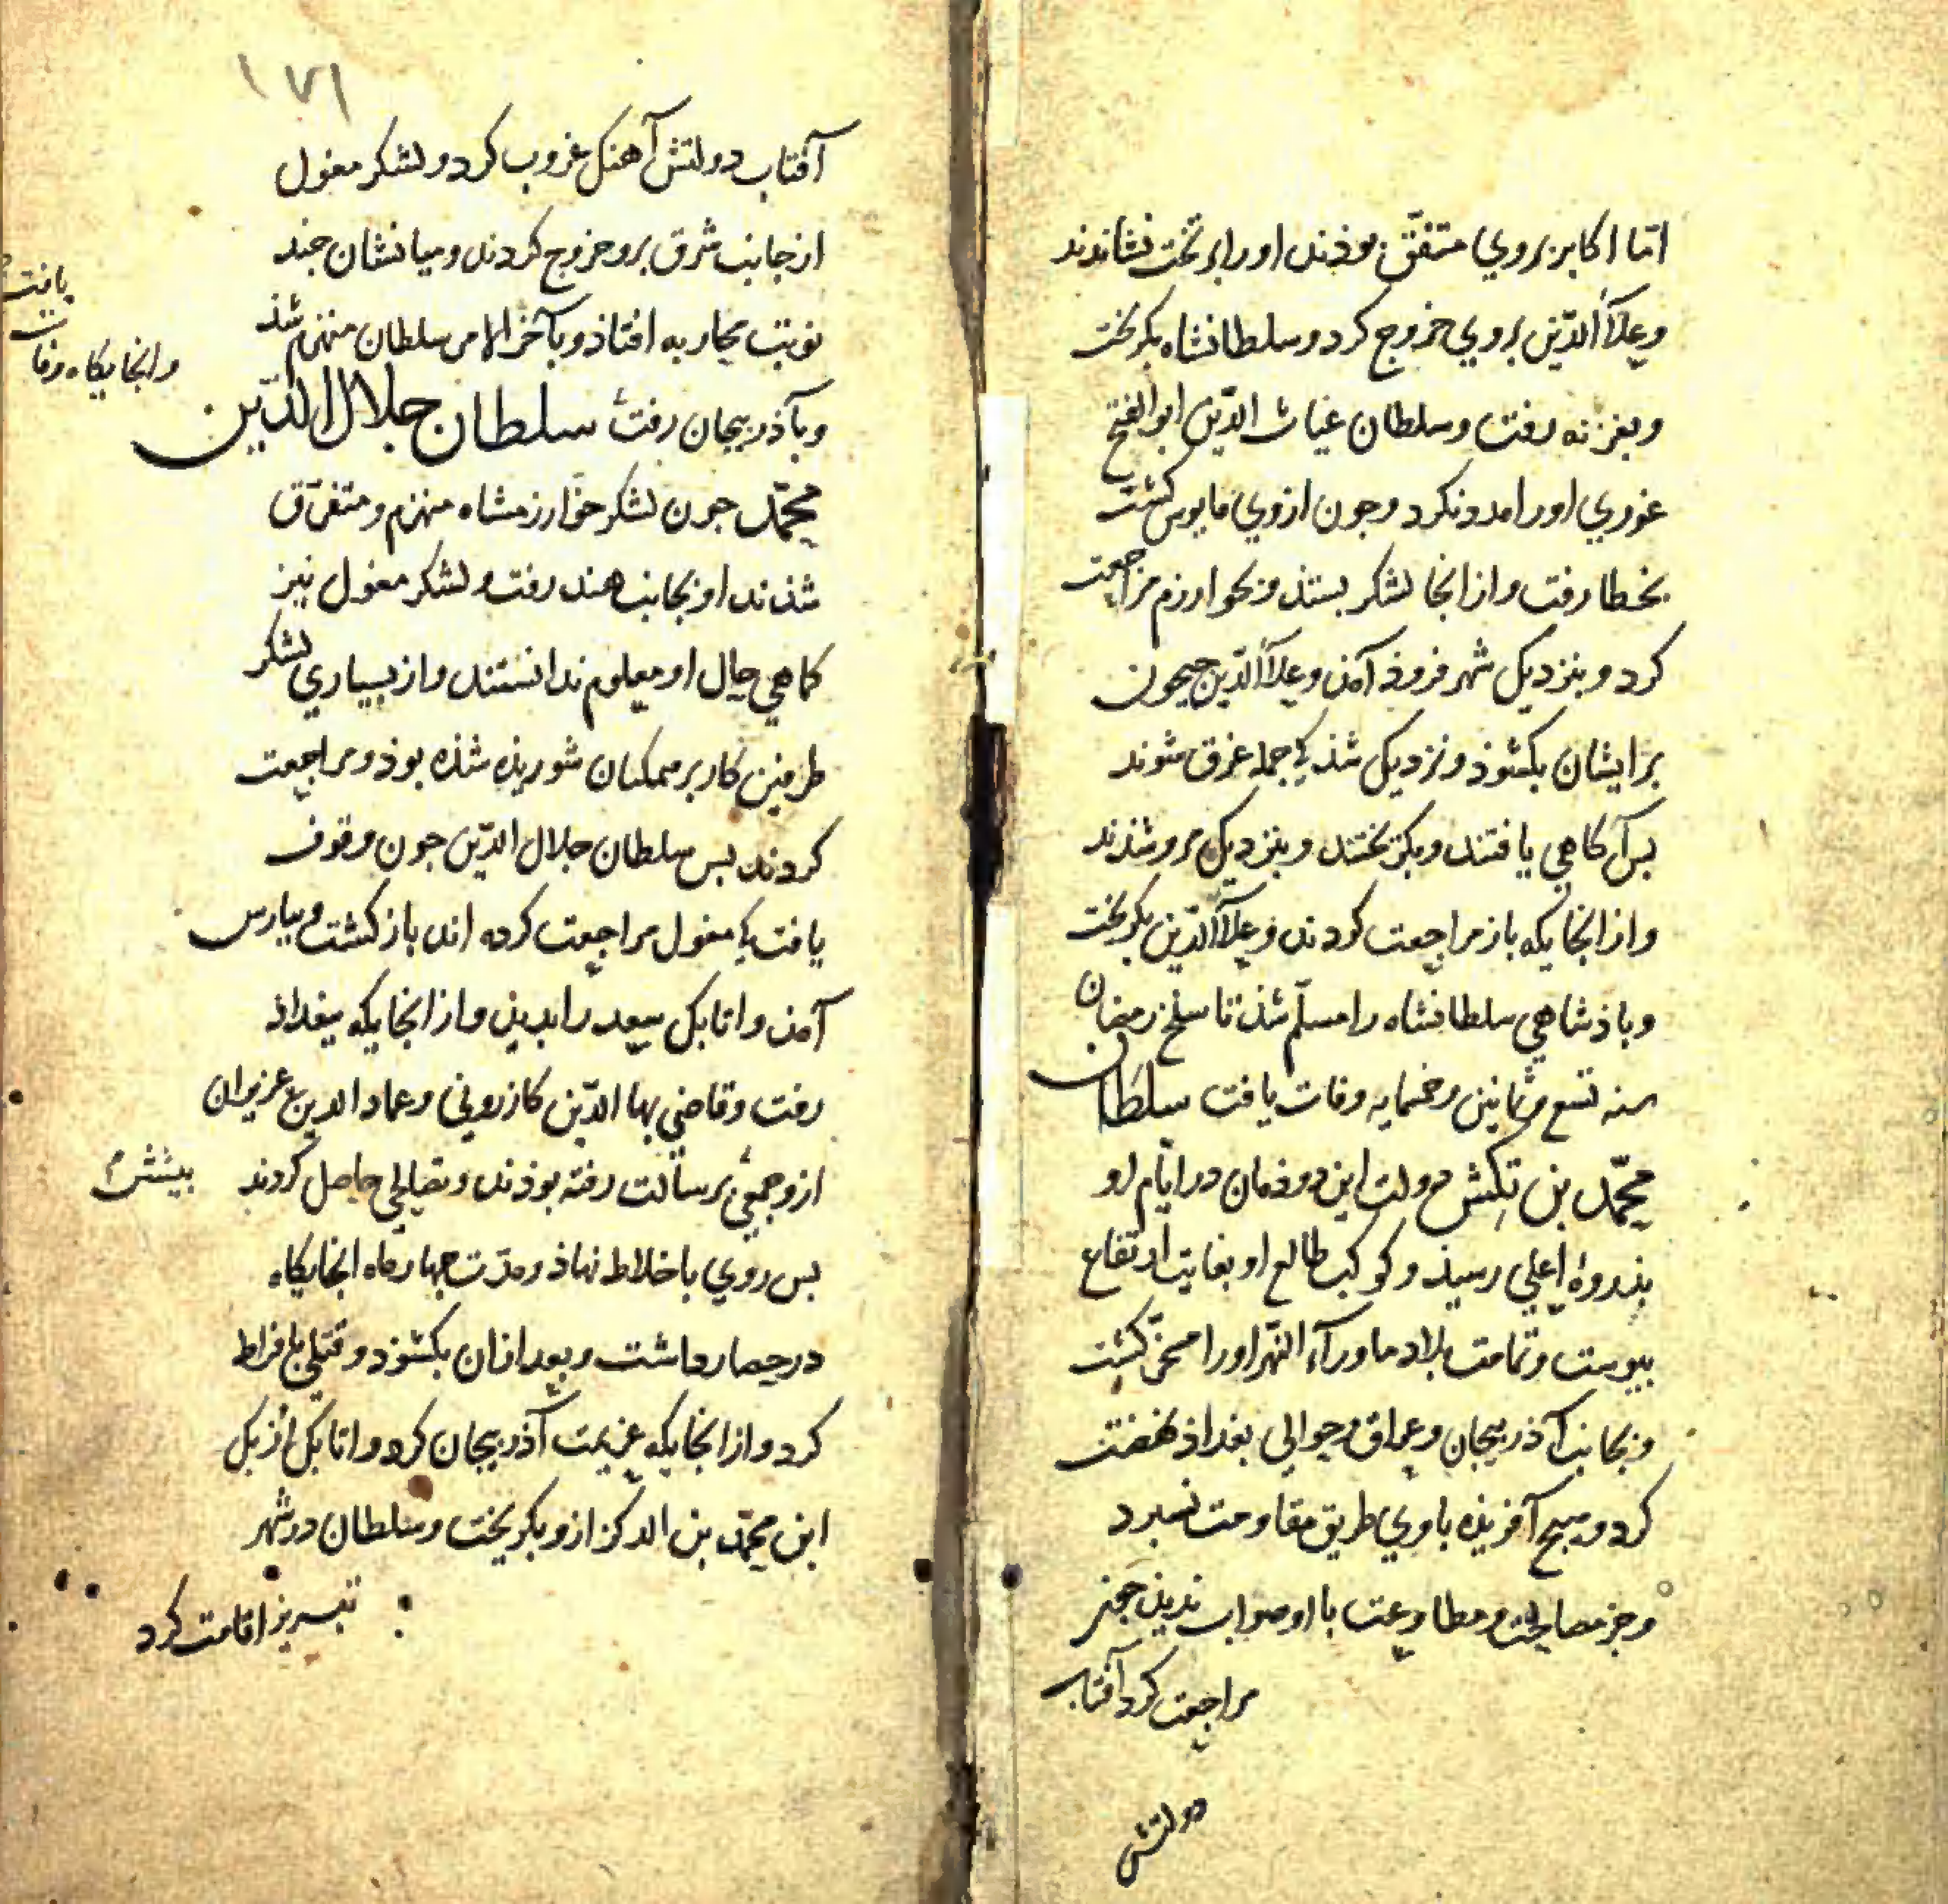 اما اکابر بروي متفق بوذند او را بر تخت نشاندند
وعلآء الدّين بروي خروج کرد وسلطانشاه بکريخت
وبغزنه رفت وسلطان غياث الدّين ابو الفتح
غوري او را مدد نکرد وجون ازوي مايوس کشت
بخطا رفت واز انجا لشکر بستذ وبخوارزم مراجعت
کرد وبنزديک شهر فروذ آمذ وعلآء الدّين جيحون
بر ايشان بکشوذ ونزديک شذ کي جمله غرق شوند
بس آکاهي يافتند وبکريختند وبنزديک مرو شذند
واز انجايکه باز مراجعت کردند وعلآء الدّين بکريخت
وباذشاهي سلطانشاه را مسلّم شذ تا سلخ رمضان
سنه تسع وثمانين وخمسمايه وفات يافت سلطان
محمّد بن تکش دولت اين دوذمان در ايّام او
بذروهٔ اعلي رسيذ وکوکب طالع او بغايت ارتفاع
بيوست وتمامت بلاد ماورآء النّهر او را مسخّر کشت
وبجانب آذربيجان وعراق وحوالي بغداذ نهضت
کرد وهيچ آفريذه با وي طريق مقاومت نسبرد
وجز مصالحت ومطاوعت با او صواب نديذ جون
مراجعت کرد آفتاب
دولتش
١٧١
آفتاب دولتش آهنک غروب کرد ولشکر مغول
از جانب شرق برو خروج کردند وميانشان جند
نوبت محاربه افتاذ وبآخر الامر سلطان منهزم شذ
وبآذربيجان رفت سلطان جلال الدّين
وانجايکاه وفات
يافت
محمّد جون لشکر خوارزمشاه منهزم ومتفرّق
شذند او بجانب هند رفت ولشکر مغول نيز
کماهي حال او معلوم ندانستند واز بسياري لشکر
طرفين کار بر ممکنان شوريذه شذه بوذ ومراجعت
کردند بس سلطان جلال الدّين جون وقوف
يافت کي مغول مراجعت کرده اند باز کشت وبپارس
آمذ واتابک سعد را بديذ واز انجايکه ببغداذ
رفت وقاضي بها الدّين کازروني وعماد الدين عزيزان
ازو جمعي برسالت رفته بوذند وتعاليي حاصل کردند
بيشتر
بس روي با خلاط نهاذ ومدّت جهار ماه انجايکاه
در حصار داشت وبعد ازان بکشوذ وقتلي با فراط
کرد واز انجايکه عزيمت آذربيجان کرد واتابک ازبک
ابن محمّد بن الدکز ازو بکريخت وسلطان در شهر
تبريز اقامت کرد